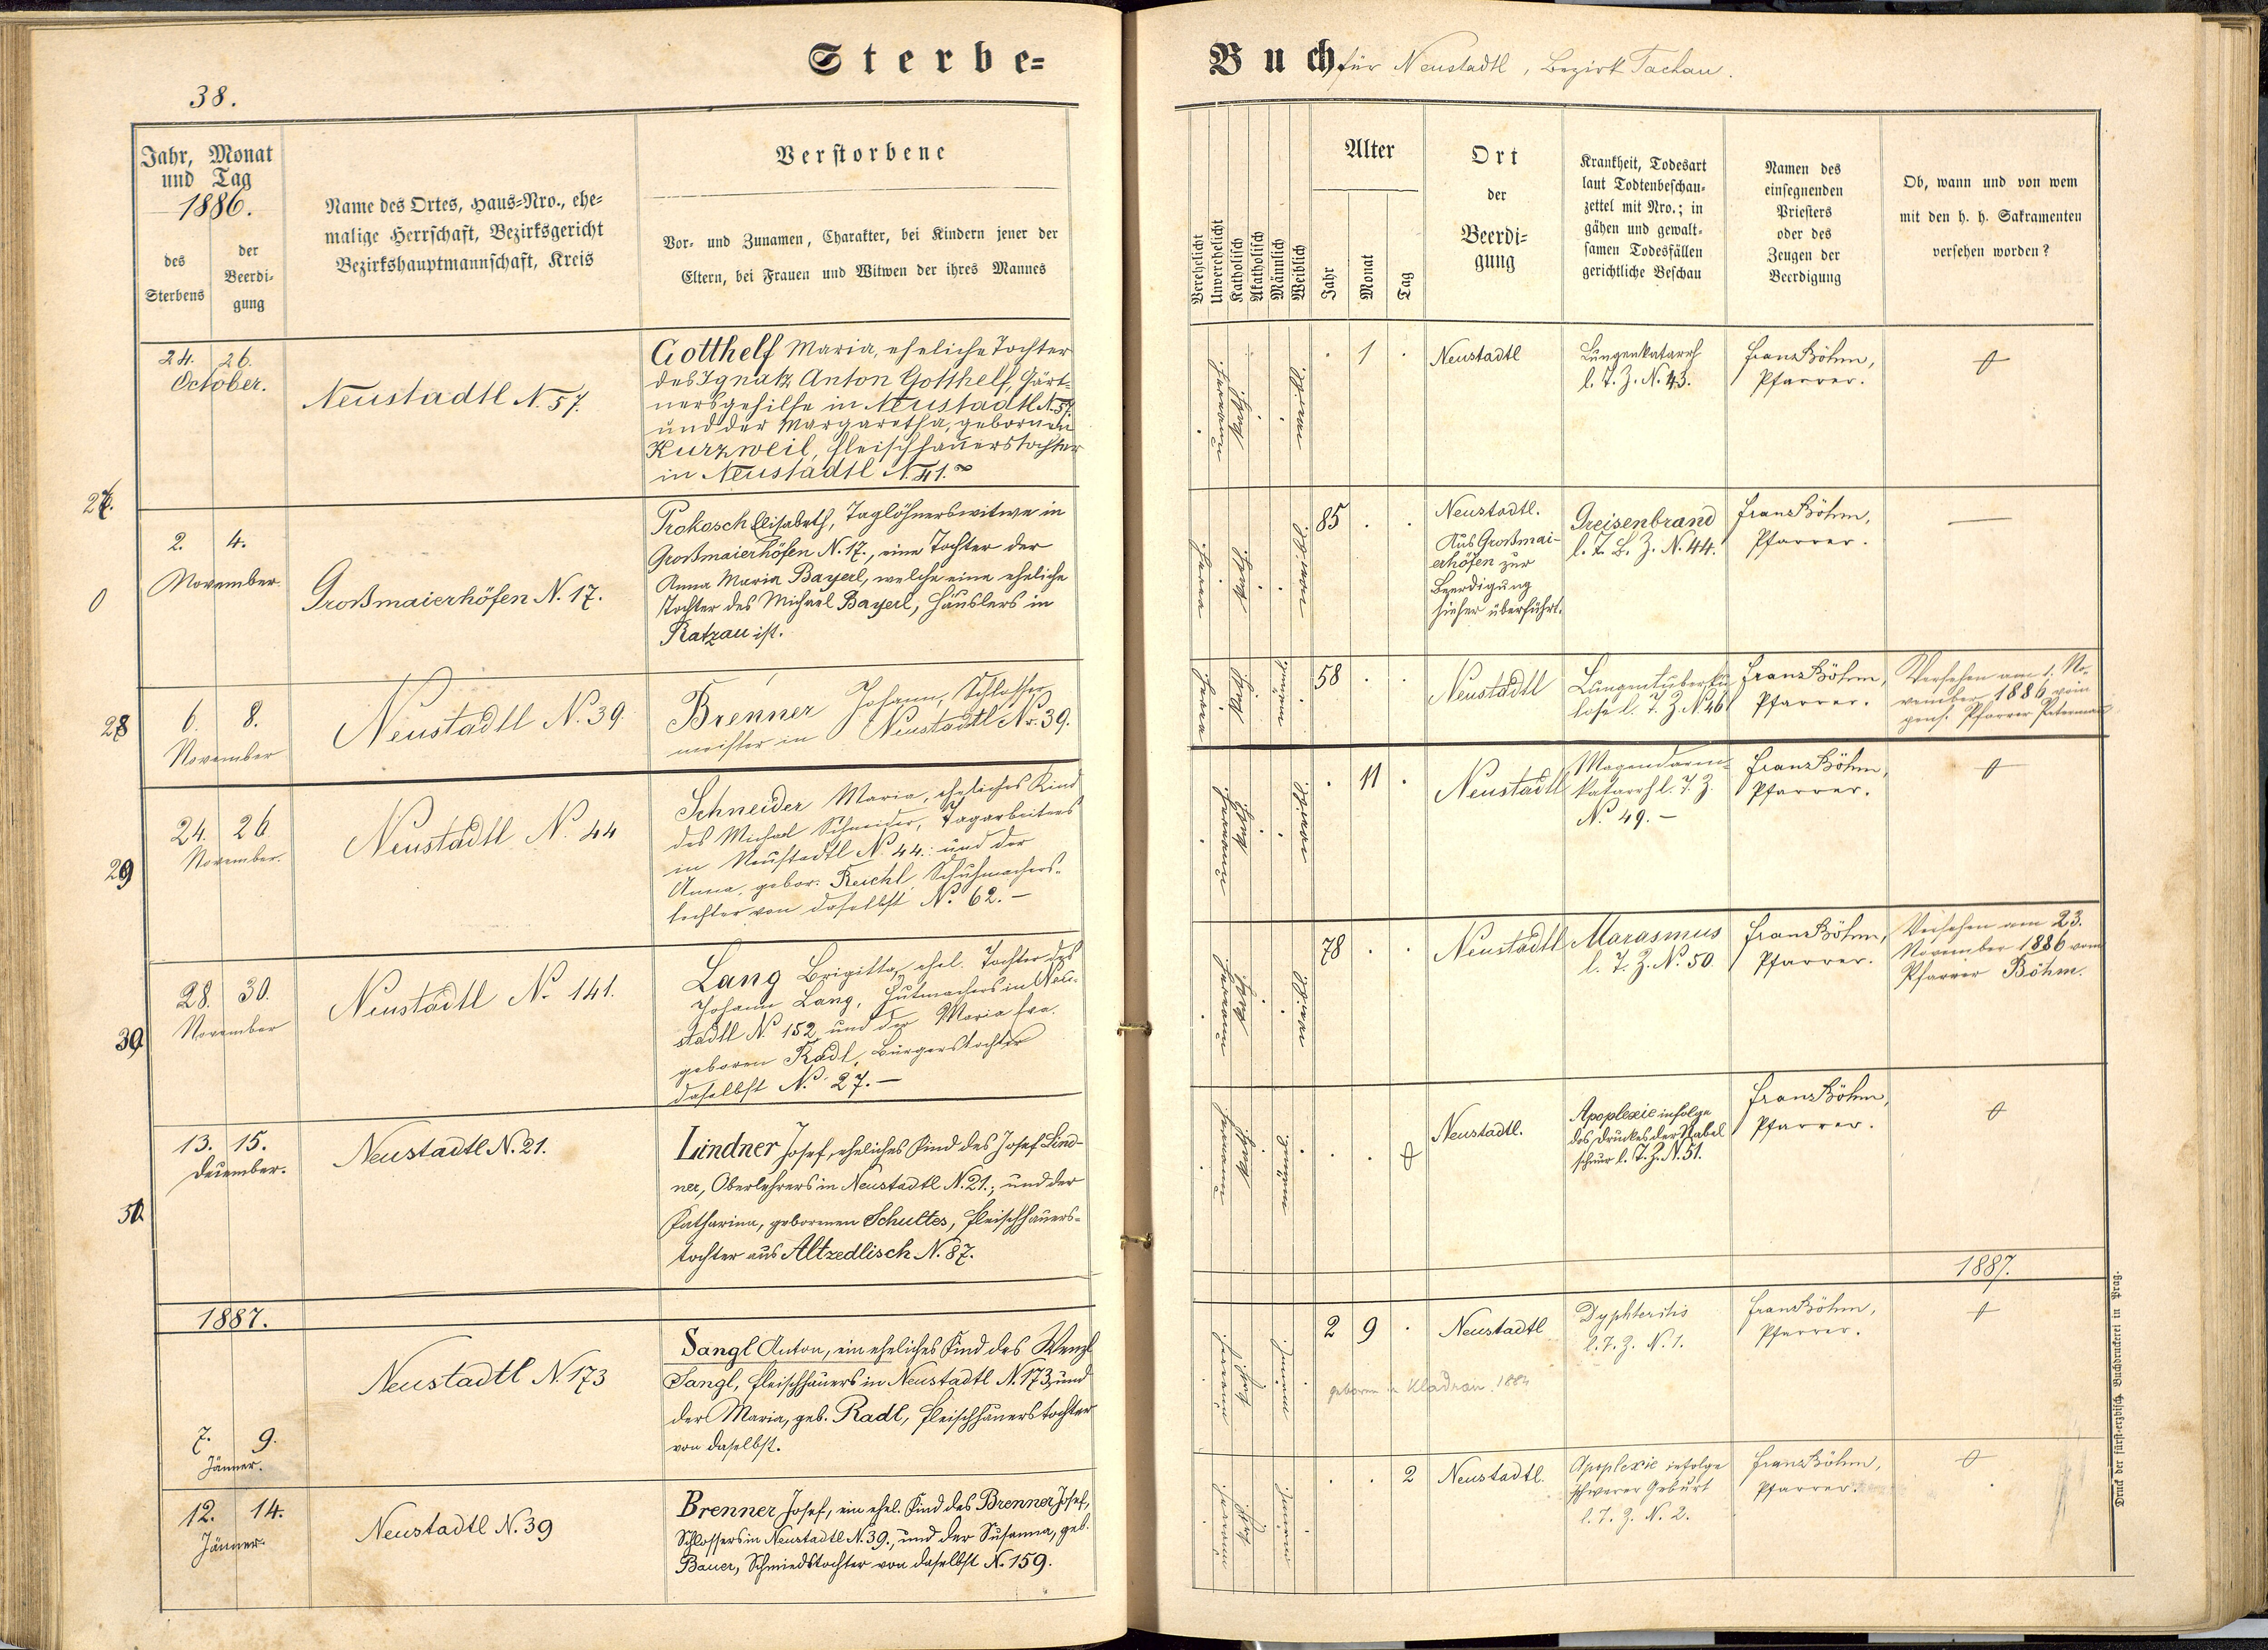 Sterbe=
38.
Jahr, Monat
und Tag
1886.
des
Sterbens
der
Beerdi-
gung
Name des Ortes, Haus=Nro., ehe=
malige Herrschaft, Bezirksgericht
Bezirkshauptmannschaft, Kreis
Verstorbene
Vor= und Zunamen, Charakter, bei Kindern jener der
Eltern, bei Frauen und Witwen der ihres Mannes
24. 26.
October.
Neustadtl N. 57.
Gotthelf Maria, eheliche Tochter
des Ignatz Anton Gotthelf, Gärt-
nersgehilfe in Neustadtl N. 57.
und der Margaretha, gebornen
Kurzweil, Fleischhauerstochter
in Neustadtl N. 41.
27.
2. 4.
November.
Großmaierhöfen N. 17.
Prokosch Elisabeth, Taglöhnerswitwe in
Großmaierhöfen N. 17., eine Tochter der
Anna Maria Bayerl, welche eine eheliche
Tochter des Michael Bayerl, Häuslers in
Ratzau ist.
0
28
6. 8.
November
Neustadtl N. 39
Brenner Johann, Schlosser
meister in Neustadtl Nr. 39.
29
24. 26
November.
Neustadtl N. 44
Schneider Maria, eheliches Kind
des Michael Schneider, Tagarbeiters
in Neustadtl N. 44. und der
Anna, gebor. Reichl, Schuhmachers-
tochter von daselbst No. 62. –
30
28. 30.
November
Neustadtl No. 141.
Lang Brigitta, ehel. Tochter des
Johann Lang, Hutmachers in Neu-
stadtl No. 152 und der Maria Eva
geboren Radl, Bürgerstochter
daselbst No. 27. –
13. 15.
December.
Neustadtl N. 21.
Lindner Josef, eheliches Kind des Josef Lind-
ner, Oberlehrers in Neustadtl N. 21.; und der
Katharina, gebornen Schultes, Fleischhauers-
tochter aus Altzedlisch N. 87.
1887.
7. 9.
Jänner.
Neustadtl N. 173
Sangl Anton, ein eheliches Kind des Wenzl
Sangl, Fleischhauers in Neustadtl N. 173, und
der Maria, geb. Radl, Fleischhauerstochter
von daselbst.
12. 14.
Jänner.
Neustadtl N. 39
Brenner Josef, ein ehel. Kind des Brenner Josef,
Schlossers in Neustadtl N. 39., und der Susanna, geb.
Bauer, Schmiedstochter von daselbst N. 159.
Buch für Neustadtl, Bezirk Tachau.
Verehelicht
Unverehelicht
Katholisch
Akatholisch
Männlich
Weiblich
Alter
Jahr
Monat
Tag
Ort
der
Beerdi=
gung
Krankheit, Todesart
laut Todtenbeschau=
zettel mit Nro.; in
gähen und gewalt=
samen Todesfällen
gerichtliche Beschau
Namen des
einsegnenden
Priesters
oder des
Zeugen der
Beerdigung
Ob, wann und von wem
mit den h. h. Sakramenten
versehen worden?
. 1 .
Neustadtl
Lungenkatarrh
l. T. Z. N. 43.
Franz Böhm,
Pfarrer.
85 . .
Neustadtl.
Aus Großmai-
erhöfen zur
Beerdigung
hieher überführt.
Greisenbrand
l. T. B. Z. N. 44.
Franz Böhm,
Pfarrer.
—
58 . .
Neustadtl
Lungentuberku
lose l. T. Z. N 46
Franz Böhm,
Pfarrer.
Versehen am 1. No-
vember 1886 vom
pens. Pfarrer Peterman
. 11 .
Neustadtl
Magendarm-
katarrh l. T. Z.
No. 49. –
Franz Böhm,
Pfarrer.
78 . .
Neustadtl
Marasmus
l. T. Z. No. 50.
Franz Böhm,
Pfarrer.
Versehen am 23.
November 1886 vom
Pfarrer Böhm.
Neustadtl.
Apoplexie infolge
des Druckes der Nabel
schnur l. T. Z. N. 51.
Franz Böhm,
Pfarrer.
1887.
2 9 .
Neustadtl
Dyphteritis
l. T. Z. N. 1.
Franz Böhm,
Pfarrer.
geboren in Kladrau 1884
. . 2
Neustadtl.
Apoplexie infolge
schwerer Geburt
l. T. Z. N. 2.
Franz Böhm,
Pfarrer.
Druck der fürst=erzbisch. Buchdruckerei in Prag.